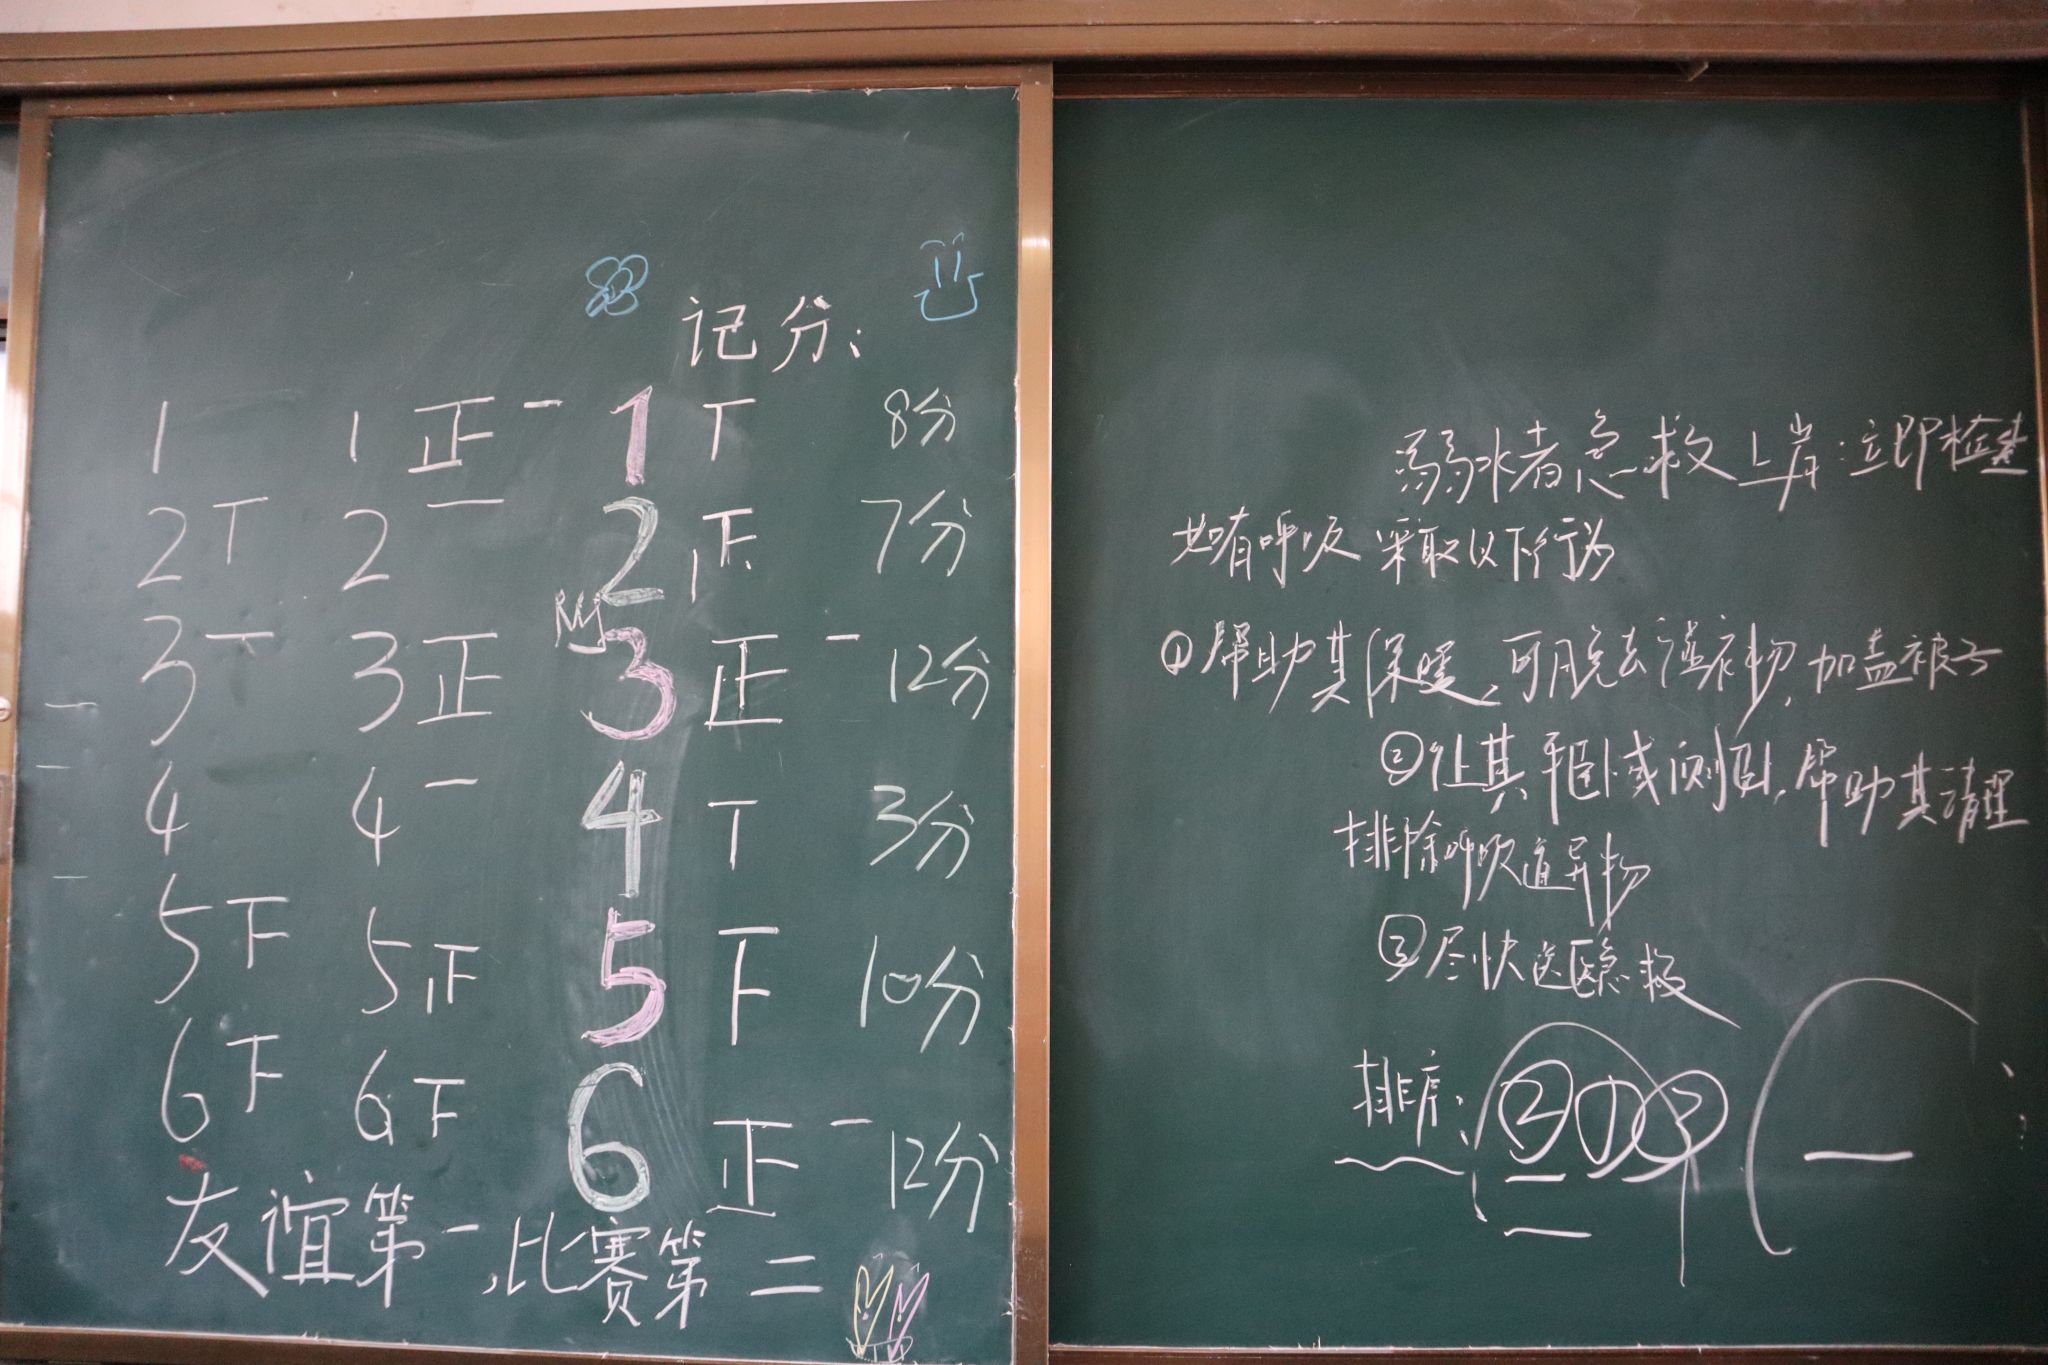 记分:
1 1 正一 1 T 8分
2 T 2 一 2 正 7分
3 T 3 正 3 正一 12分
4 4 一 4 T 3分
5 下 5 正 5 下 10分
6 下 6 下 6 正一 12分
友谊第一,比赛第二
溺水者急救上岸:立即检查
如有呼吸 采取以下行为
①帮助其保暖,可脱去湿衣物,加盖被子
②让其平卧或侧卧,帮助其清理
排除呼吸道异物
③尽快送医急救
排序:②①③